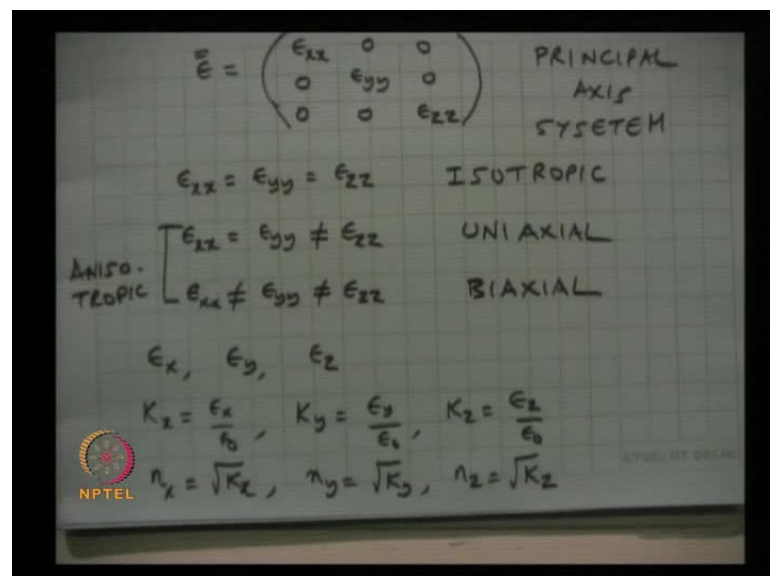 ε̿ = ( εxx 0 0
0 εyy 0
0 0 εzz )
PRINCIPAL
AXIS
SYSETEM
εxx = εyy = εzz ISOTROPIC
εxx = εyy ≠ εzz UNIAXIAL
ANISO-
TROPIC
εxx ≠ εyy ≠ εzz BIAXIAL
εx, εy, εz
Kx = εx/ε0, Ky = εy/ε0, Kz = εz/ε0
nx = √Kx, ny = √Ky, nz = √Kz
NPTEL